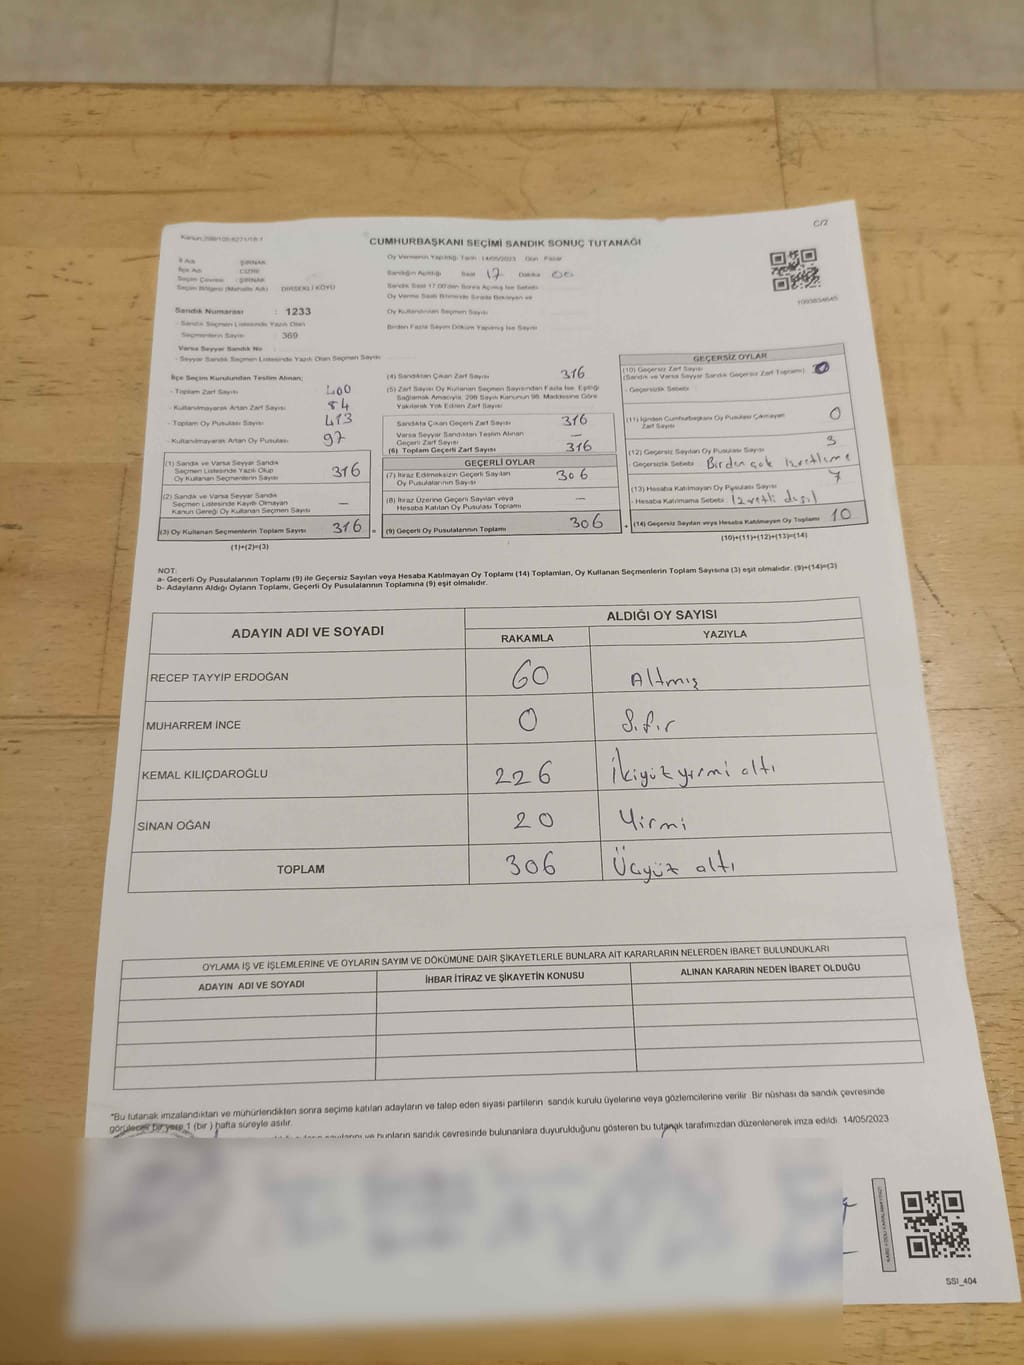 C/2
Kanun:298/105-6271/18-1
CUMHURBAŞKANI SEÇİMİ SANDIK SONUÇ TUTANAĞI
Oy Vermenin Yapıldığı Tarih : 14/05/2023 Gün : Pazar
İl Adı : ŞIRNAK
İlçe Adı : CİZRE
Seçim Çevresi : ŞIRNAK
Seçim Bölgesi (Mahalle Adı) : DİRSEKLİ KÖYÜ
Sandığın Açıldığı Saat 17 Dakika 00
Sandık Saat 17:00'den Sonra Açılmış İse Sebebi
Oy Verme Saati Bitiminde Sırada Bekleyen ve
Oy Kullandırılan Seçmen Sayısı
Birden Fazla Sayım Döküm Yapılmış İse Sayısı
Sandık Numarası : 1233
- Sandık Seçmen Listesinde Yazılı Olan
Seçmenlerin Sayısı : 369
Varsa Seyyar Sandık No
- Seyyar Sandık Seçmen Listesinde Yazılı Olan Seçmen Sayısı
İlçe Seçim Kurulundan Teslim Alınan;
- Toplam Zarf Sayısı 400
- Kullanılmayarak Artan Zarf Sayısı 84
- Toplam Oy Pusulası Sayısı 413
- Kullanılmayarak Artan Oy Pusulası 97
(1) Sandık ve Varsa Seyyar Sandık
Seçmen Listesinde Yazılı Olup
Oy Kullanan Seçmenlerin Sayısı 316
(2) Sandık ve Varsa Seyyar Sandık
Seçmen Listesinde Kayıtlı Olmayan
Kanun Gereği Oy Kullanan Seçmen Sayısı —
(3) Oy Kullanan Seçmenlerin Toplam Sayısı 316 =
(1)+(2)=(3)
(4) Sandıktan Çıkan Zarf Sayısı 316
(5) Zarf Sayısı Oy Kullanan Seçmen Sayısından Fazla İse, Eşitliği
Sağlamak Amacıyla, 298 Sayılı Kanunun 98. Maddesine Göre
Yakılarak Yok Edilen Zarf Sayısı
Sandıkta Çıkan Geçerli Zarf Sayısı 316
Varsa Seyyar Sandıktan Teslim Alınan
Geçerli Zarf Sayısı —
(6) Toplam Geçerli Zarf Sayısı 316
GEÇERLİ OYLAR
(7) İtiraz Edilmeksizin Geçerli Sayılan
Oy Pusulalarının Sayısı 306
(8) İtiraz Üzerine Geçerli Sayılan veya
Hesaba Katılan Oy Pusulası Toplamı —
(9) Geçerli Oy Pusulalarının Toplamı 306 +
1093834645
GEÇERSİZ OYLAR
(10) Geçersiz Zarf Sayısı
(Sandık ve Varsa Seyyar Sandık Geçersiz Zarf Toplamı)
- Geçersizlik Sebebi :
(11) İçinden Cumhurbaşkanı Oy Pusulası Çıkmayan
Zarf Sayısı 0
(12) Geçersiz Sayılan Oy Pusulası Sayısı 3
- Geçersizlik Sebebi : Birden çok İzretleme
(13) Hesaba Katılmayan Oy Pusulası Sayısı 7
- Hesaba Katılmama Sebebi : İzretli değil
(14) Geçersiz Sayılan veya Hesaba Katılmayan Oy Toplamı 10
(10)+(11)+(12)+(13)=(14)
NOT:
a- Geçerli Oy Pusulalarının Toplamı (9) ile Geçersiz Sayılan veya Hesaba Katılmayan Oy Toplamı (14) Toplamları, Oy Kullanan Seçmenlerin Toplam Sayısına (3) eşit olmalıdır. (9)+(14)=(3)
b- Adayların Aldığı Oyların Toplamı, Geçerli Oy Pusulalarının Toplamına (9) eşit olmalıdır.
ADAYIN ADI VE SOYADI
ALDIĞI OY SAYISI
RAKAMLA YAZIYLA
RECEP TAYYİP ERDOĞAN 60 Altmış
MUHARREM İNCE 0 Sıfır
KEMAL KILIÇDAROĞLU 226 İkiyüz yirmi altı
SİNAN OĞAN 20 Yirmi
TOPLAM 306 Üçyüz altı
OYLAMA İŞ VE İŞLEMLERİNE VE OYLARIN SAYIM VE DÖKÜMÜNE DAİR ŞİKAYETLERLE BUNLARA AİT KARARLARIN NELERDEN İBARET BULUNDUKLARI
ADAYIN ADI VE SOYADI İHBAR İTİRAZ VE ŞİKAYETİN KONUSU ALINAN KARARIN NEDEN İBARET OLDUĞU
*Bu tutanak imzalandıktan ve mühürlendikten sonra seçime katılan adayların ve talep eden siyasi partilerin sandık kurulu üyelerine veya gözlemcilerine verilir. Bir nüshası da sandık çevresinde
görülecek bir yere 1 (bir ) hafta süreyle asılır.
ve bunların sandık çevresinde bulunanlara duyurulduğunu gösteren bu tutanak tarafımızdan düzenlenerek imza edildi. 14/05/2023
SSI_404